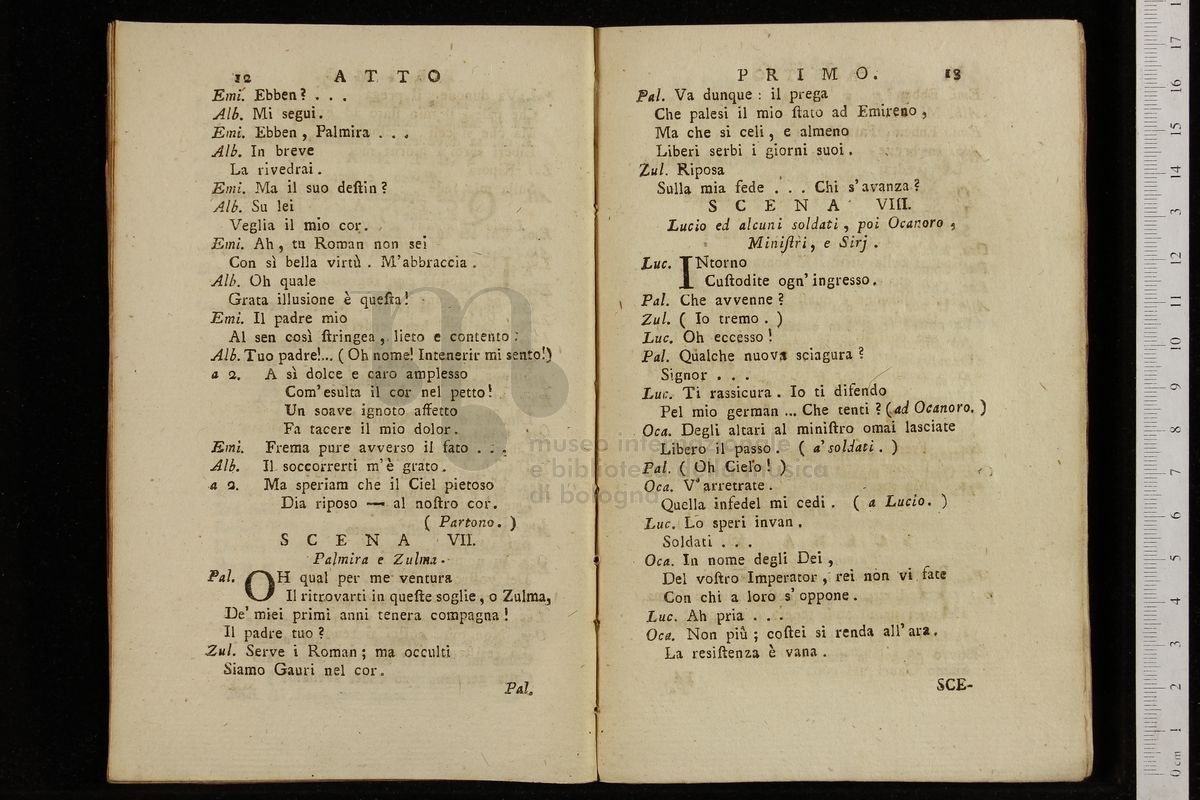 12 ATTO
Emi. Ebben? . . .
Alb. Mi segui.
Emi. Ebben, Palmira . . .
Alb. In breve
La rivedrai.
Emi. Ma il suo deſtin?
Alb. Su lei
Veglia il mio cor.
Emi. Ah, tu Roman non sei
Con sì bella virtù. M'abbraccia.
Alb. Oh quale
Grata illusione è queſta!
Emi. Il padre mio
Al sen così ſtringea, lieto e contento:
Alb. Tuo padre!... (Oh nome! Intenerir mi sento!)
a 2. A sì dolce e caro amplesso
Com'esulta il cor nel petto!
Un soave ignoto affetto
Fa tacere il mio dolor.
Emi. Frema pure avverso il fato . . .
Alb. Il soccorrerti m'è grato.
a 2. Ma speriam che il Ciel pietoso
Dia riposo — al noſtro cor.
(Partono.)
SCENA VII.
Palmira e Zulma.
Pal. OH qual per me ventura
Il ritrovarti in queſte soglie, o Zulma,
De' miei primi anni tenera compagna!
Il padre tuo?
Zul. Serve i Roman; ma occulti
Siamo Gauri nel cor.
Pal.
PRIMO. 13
Pal. Va dunque: il prega
Che palesi il mio ſtato ad Emireno,
Ma che si celi, e almeno
Liberi serbi i giorni suoi.
Zul. Riposa
Sulla mia fede . . . Chi s'avanza?
SCENA VIII.
Lucio ed alcuni soldati, poi Ocanoro,
Miniſtri, e Sirj.
Luc. INtorno
Cuſtodite ogn'ingresso.
Pal. Che avvenne?
Zul. (Io tremo.)
Luc. Oh eccesso!
Pal. Qualche nuova sciagura?
Signor . . .
Luc. Ti rassicura. Io ti difendo
Pel mio german ... Che tenti? (ad Ocanoro.)
Oca. Degli altari al miniſtro omai lasciate
Libero il passo. (a' soldati.)
Pal. (Oh Cielo!)
Oca. V'arretrate.
Quella infedel mi cedi. (a Lucio.)
Luc. Lo speri invan.
Soldati . . .
Oca. In nome degli Dei,
Del voſtro Imperator, rei non vi fate
Con chi a loro s'oppone.
Luc. Ah pria . . .
Oca. Non più; coſtei si renda all'ara.
La resiſtenza è vana.
SCE-
museo internazionale
e biblioteca della musica
di bologna
0 cm 1 2 3 4 5 6 7 8 9 10 11 12 13 14 15 16 17